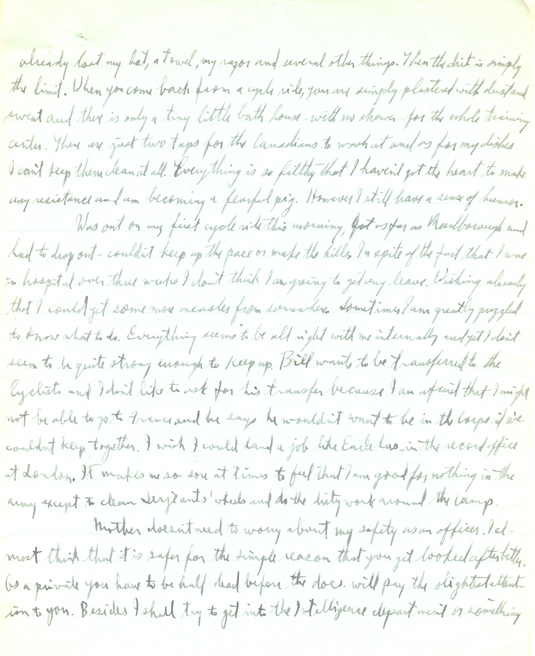 already lost my hat, a towel, my razor and several other things. Then the dirt is simply
the limit. When you come back from a cycle ride, you are simply plastered with dust and
sweat and there is only a tiny little bath house - with no shower - for the whole training
center. There are just two taps for the Canadians to wash at and as for my dishes
I can't keep them clean at all. Everything is so filthy that I haven't got the heart to make
any resistance and am becoming a fearful pig. However I still have a sense of humor.
Was out on my first cycle ride this morning, got as far as and
had to drop out - couldn't keep up the pace or make the hills. In spite of the fact that I was
in hospital over three weeks I don't think I am going to get any leave. Wishing already
that I could get some more measles from somewhere. Sometimes I am greatly puzzled
to know what to do. Everything seems to be all right with me internally and yet I don't
seem to be quite strong enough to keep up. Bill wants to be transferred to the
Cyclists and I don't like to ask for his transfer because I am afraid that I might
not be able to go to France and he says he wouldn't want to be in the corps if we
couldn't keep together. I wish I could land a job like Earle has in the record office
at London. It makes me so sore at times to feel that I am good for nothing in the
army except to clean Sergeants' wheels and do the dirty work around the camp.
Mother doesn't need to worry about my safety as an officer. I al-
most think that it is safer for the simple reason that you get looked after better.
As a private you have to be half dead before the docs. will pay the slightest attent-
ion to you. Besides I shall try to get into the Intelligence department or something